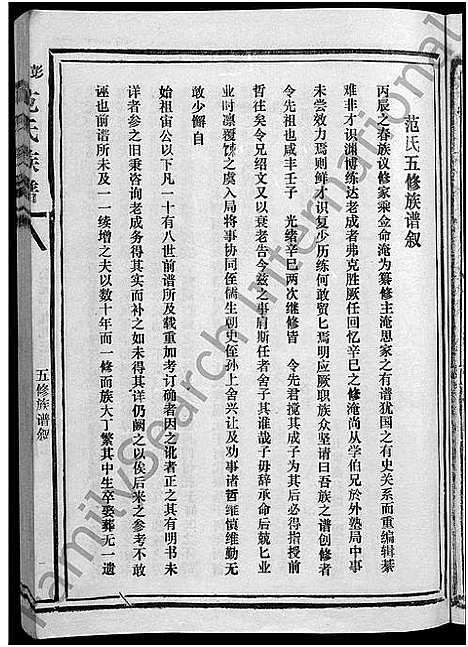 范氏五修族谱叙
丙辰之春族议修家乘佥命淹为纂修主淹思家之有谱犹国之有史关系而重编辑綦
难非才识渊博练达老成者弗克胜厥任回忆辛巳之修淹尚从学伯兄於外塾局中事
未尝效力焉则鲜才识复少历练何敢贸匕焉明应厥职族众坚请曰吾族之谱创修者
令先祖也咸丰壬子 光绪辛巳两次继修皆 令先君搅其成子为其后必得指授前
哲往矣令兄绍文又以衰老告今兹之事肩斯任者舍子其谁哉子毋辞承命后兢匕业
业时凛覆餗之虞入局将事协同侄儒生朝史侄孙上舍兴让及劝事诸哲维慎维勤无
敢少懈自
始祖宙公以下凡一十有八世前谱所及载重加考订确者因之讹者正之其有明书未
详者参之旧秉咨询老成务得其实而补之如未得其详仍阙之以俟后来之参考不敢
诬也前谱所未及一一续增之夫以数十年而一修而族大丁繁其中生卒娶葬无一遗
彭
范氏族谱
五修族谱叙
FamilySearch International